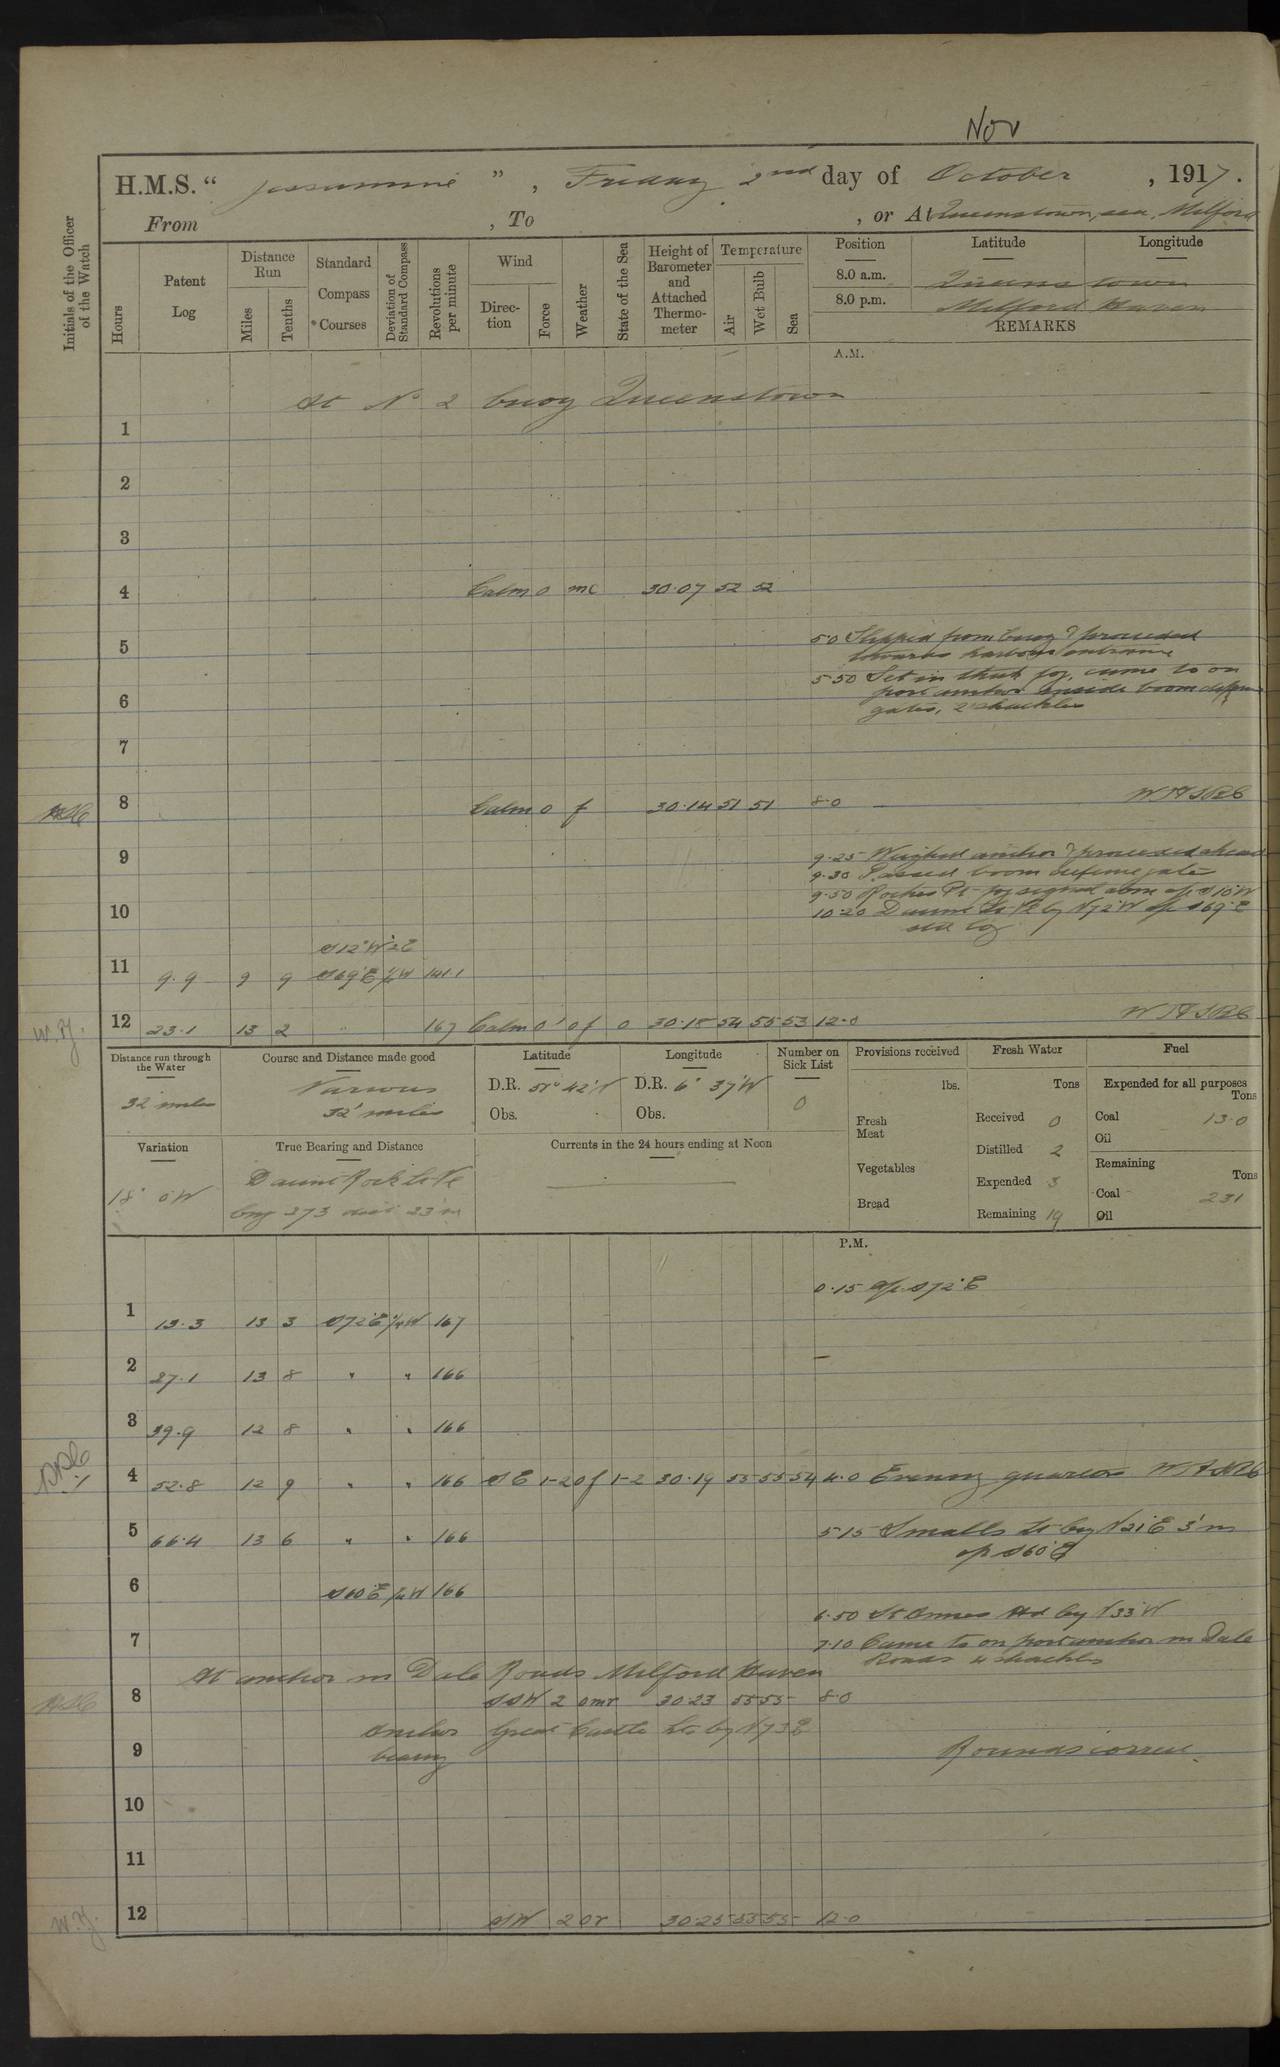 Nov
H.M.S. “ Jessamine ” , Friday 2nd day of October , 1917.
From , To , or At Queenstown, sea, Milford
Initials of the Officer of the Watch
Hours
Patent Log
Distance Run
Miles
Tenths
Standard Compass Courses
Deviation of Standard Compass
Revolutions per minute
Wind
Direction
Force
Weather
State of the Sea
Height of Barometer and Attached Thermometer
Temperature
Air
Wet Bulb
Sea
Position Latitude Longitude
8.0 a.m. Queenstown
8.0 p.m. Milford Haven
REMARKS
A.M.
At No 2 buoy Queenstown
1
2
3
4 Calm 0 mc 30.07 52 52
5 5.0 Slipped from buoy & proceeded
towards harbour entrance
5.50 Set in thick fog, came to on
6 port anchor inside boom defence
gates, 2 shackles
7
8 Calm 0 f 30.14 51 51 8.0
9 9.25 Weighed anchor & proceeded ahead
9.30 Passed boom defence gates
9.50 Roches Pt fog signal abeam a/c S10°W
10 10.20 Daunt Lt Ve by N72°W a/c S69°E
set log
S12°W 2E
11 9.9 9 9 S69°E ½W 141.1
W.J. 12 23.1 13 2 " 167 Calm 0 of 0 30.18 54 55 53 12.0
Distance run through the Water
32 miles
Course and Distance made good
Various
32' miles
Latitude
D.R. 51° 42'N
Obs.
Longitude
D.R. 6° 37'W
Obs.
Number on Sick List
0
Provisions received
lbs.
Fresh Meat
Vegetables
Bread
Fresh Water
Tons
Received 0
Distilled 2
Expended 3
Remaining 19
Fuel
Expended for all purposes
Tons
Coal 13.0
Oil
Remaining
Tons
Coal 231
Oil
Variation
18° 0W
True Bearing and Distance
Daunt Rock Lt Ve
brg 273 dist 33 m
Currents in the 24 hours ending at Noon
P.M.
0.15 a/c S72°E
1 13.3 13 3 S72°E ½W 167
2 27.1 13 8 " " 166
3 39.9 12 8 " " 166
4 52.8 12 9 " " 166 SE 1-2 of 1-2 30.19 55 55 54 4.0 Evening quarters
5 66.4 13 6 " " 166 5.15 Smalls Lt by N21°E 3'm
a/c S60°E
6 S60°E ½W 166
6.50 St Annes Hd by N33°W
7 7.10 Came to on port anchor in Dale
Roads 4 shackles
At anchor in Dale Roads Milford Haven
8 SSW 2 omr 30.23 55 55 8.0
Anchor bearing Great Castle Lt by N73E
9 Rounds correct.
10
11
W.J. 12 SW 2 or 30.25 55 55 12.0